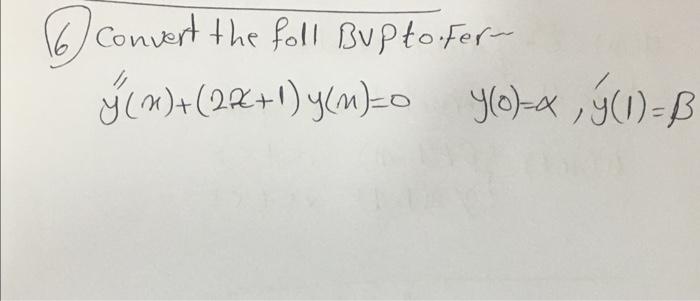 6) Convert the foll BVP to Fer
y''(x)+(2x+1) y(x)=0 y(0)=α , y'(1)=β